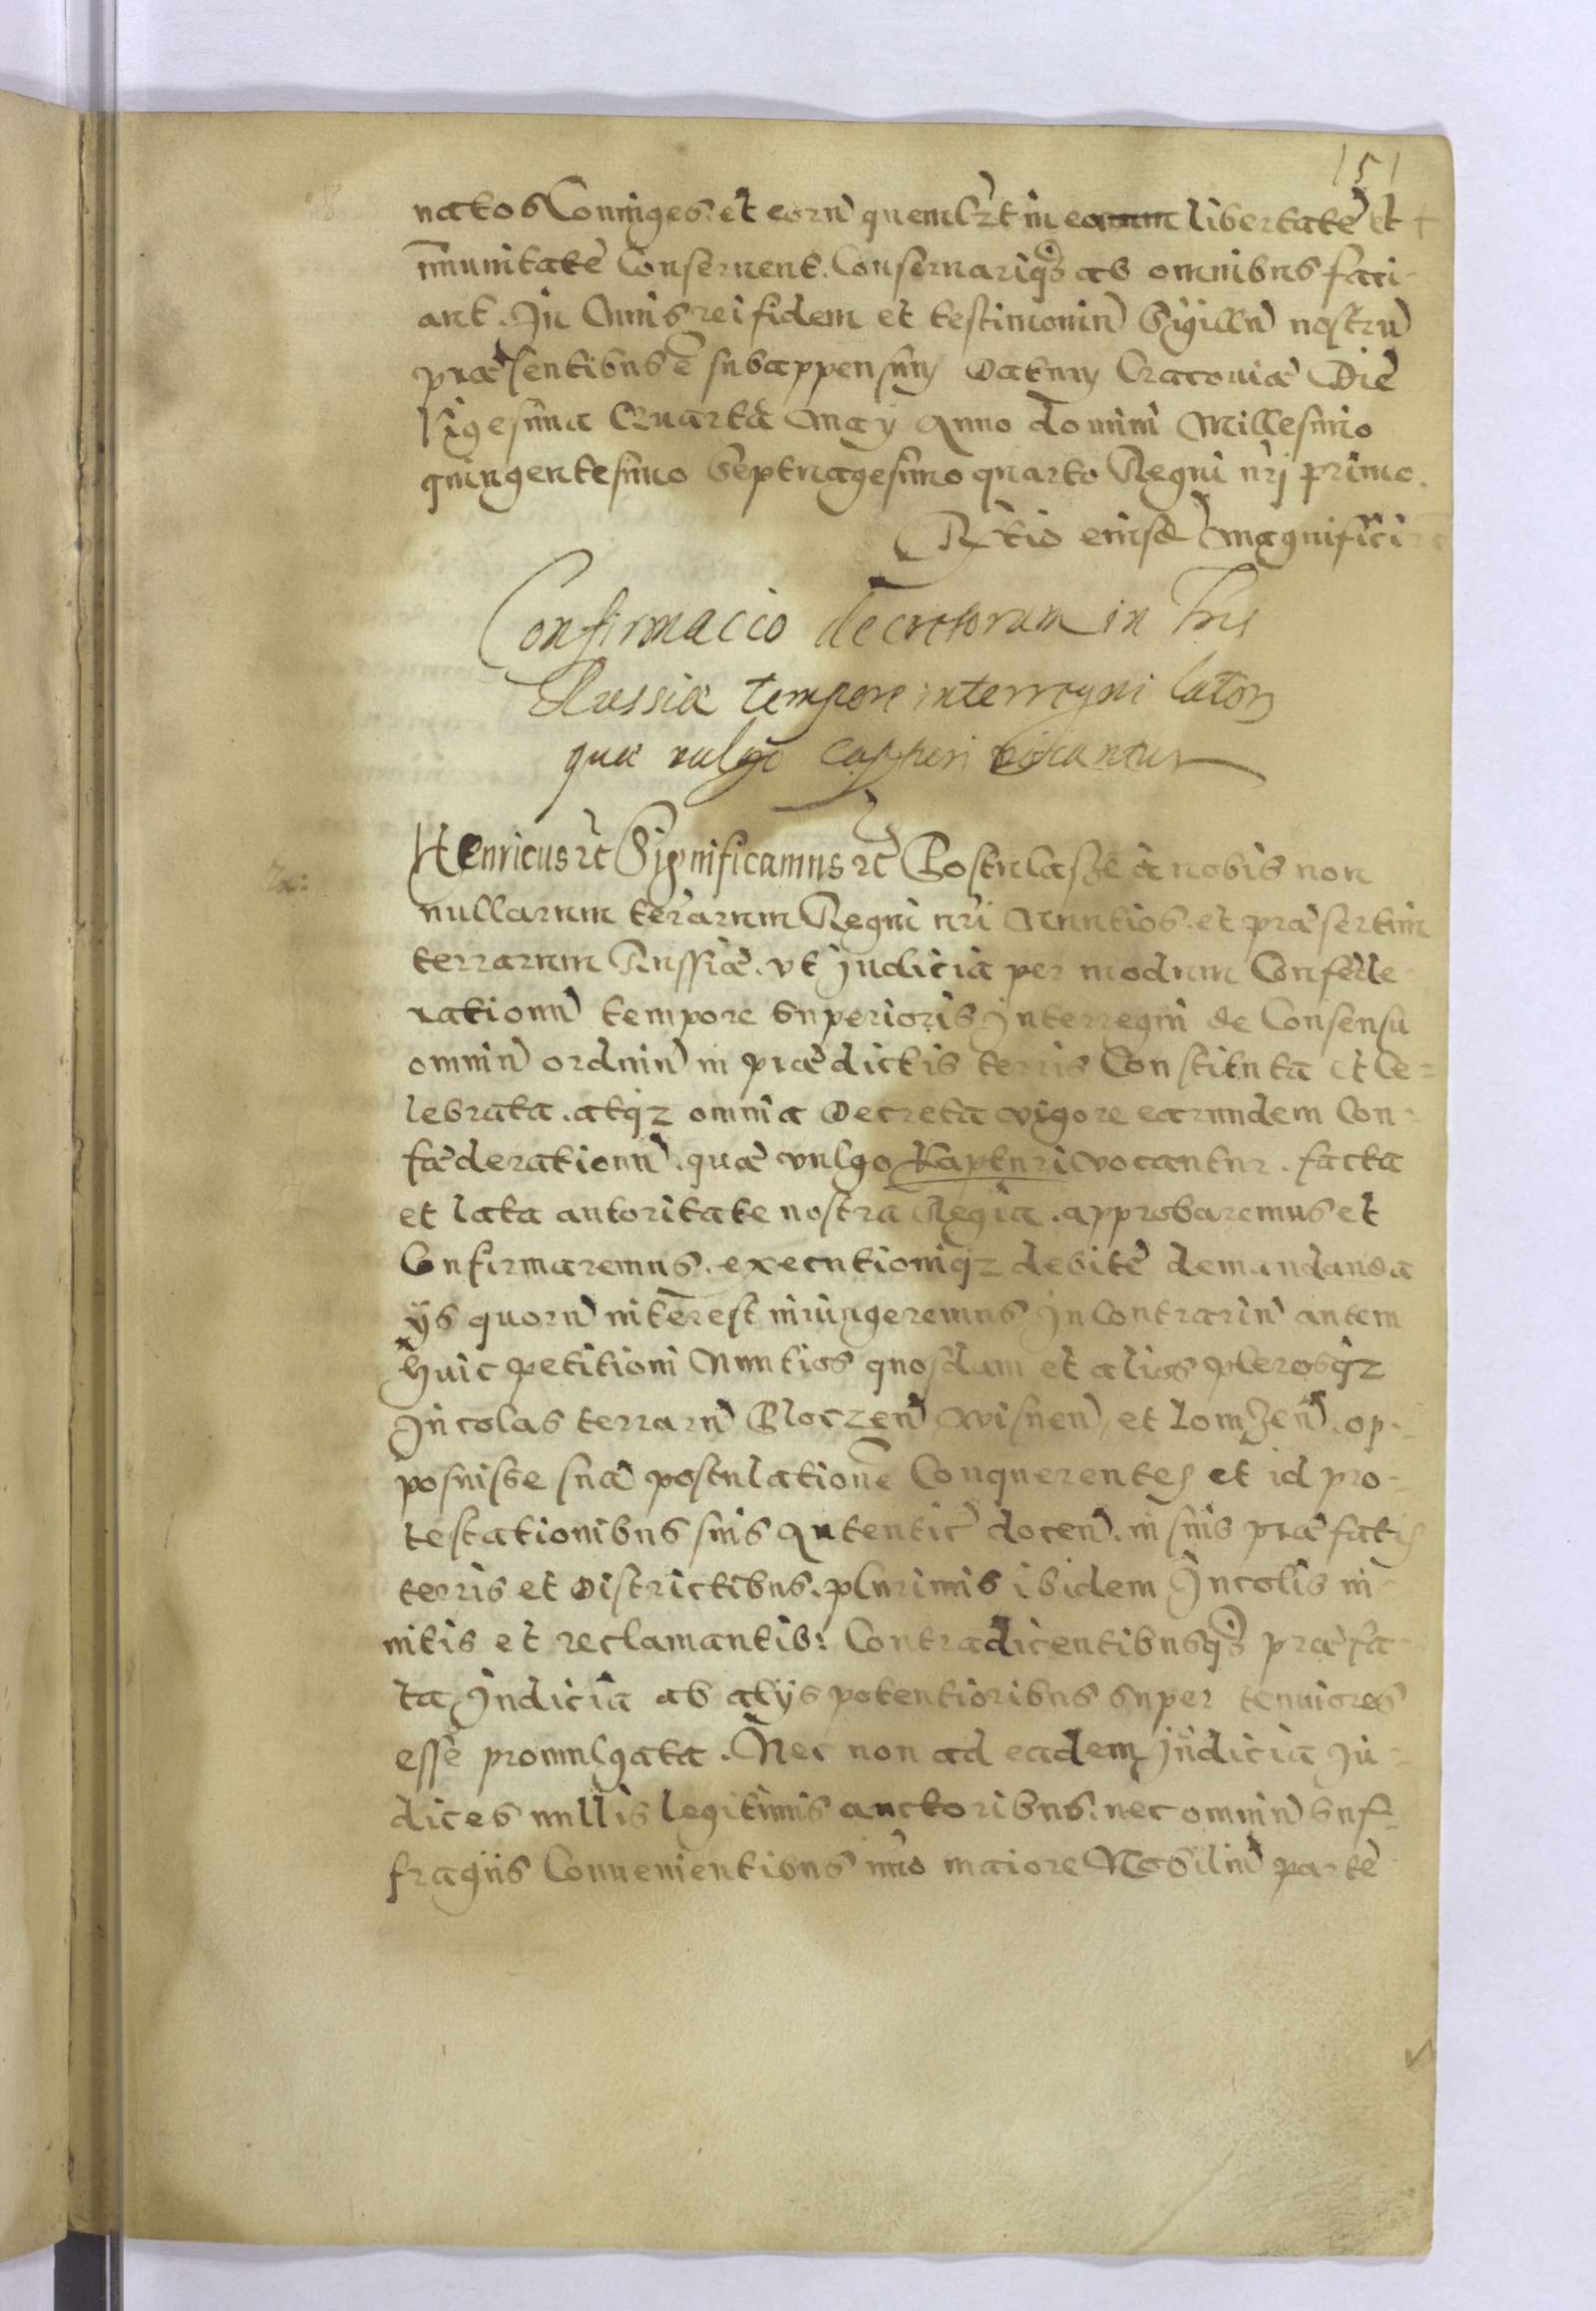 151
natos Coniuges. et eorũ quemlz̃t in ea libertatẽ et
im̃unitatẽ Conseruent. Conseruariq3 ab omnibus faci-
ant. In Cuius rei fidem et testimoniũ Sigillũ nostrũ
præsentibus ẽ subappensum Datum Cracouiæ Die
Vigesima Quarta May Anno domini Millesimo
quingentesimo Septuagesimo quarto Regni nr̃j primo.
eiusdẽ Magnifici
Confirmacio decretorum in
Russiæ tempore interregni lator̃
quæ vulgo captæri vocantur
Henricus ꝛc̃ Significamus ꝛc̃ Postulasse à nobis non
nullarum terrarum Regni nr̃i Nuntios. et præsertim
terrarum Russiæ. vt Judicia per modum Confœde-
rationũ tempore superioris Interregni de Consensu
omniũ ordinũ in prædictis terris Constituta et Ce-
lebrata. atq3 omnia Decreta vigore earundem Con-
fæderationũ. quæ vulgo Kapturi vocantur. facta
et lata autoritate nostra Regia. approbaremus et
Confirmaremus. executioniq3 debitè demandanda
ijs quorũ interest iniungeremus In Contrariũ autem
huic petitioni Nuntios quosdam et alios plerosq3
Incolas terrarũ Ploczeñ Wisneñ et Lomzeñ. op-
posuisse suã postulationẽ Conquerentes et id pro-
testationibus suis Autentic̃ doceñ. in suis præfatis
terris et Districtibus. plurimis ibidem Incolis in-
uitis et reclamantib: Contradicentibusq3 præfa-
ta Judicia ab alijs potentioribus super tenuiores
esse promulgata. Nec non ad eadem judicia Ju-
dices nullis legitimis auctoribus. nec omniũ suf-
fragijs Conuenientibus im̃o maiore Nobiliũ parte